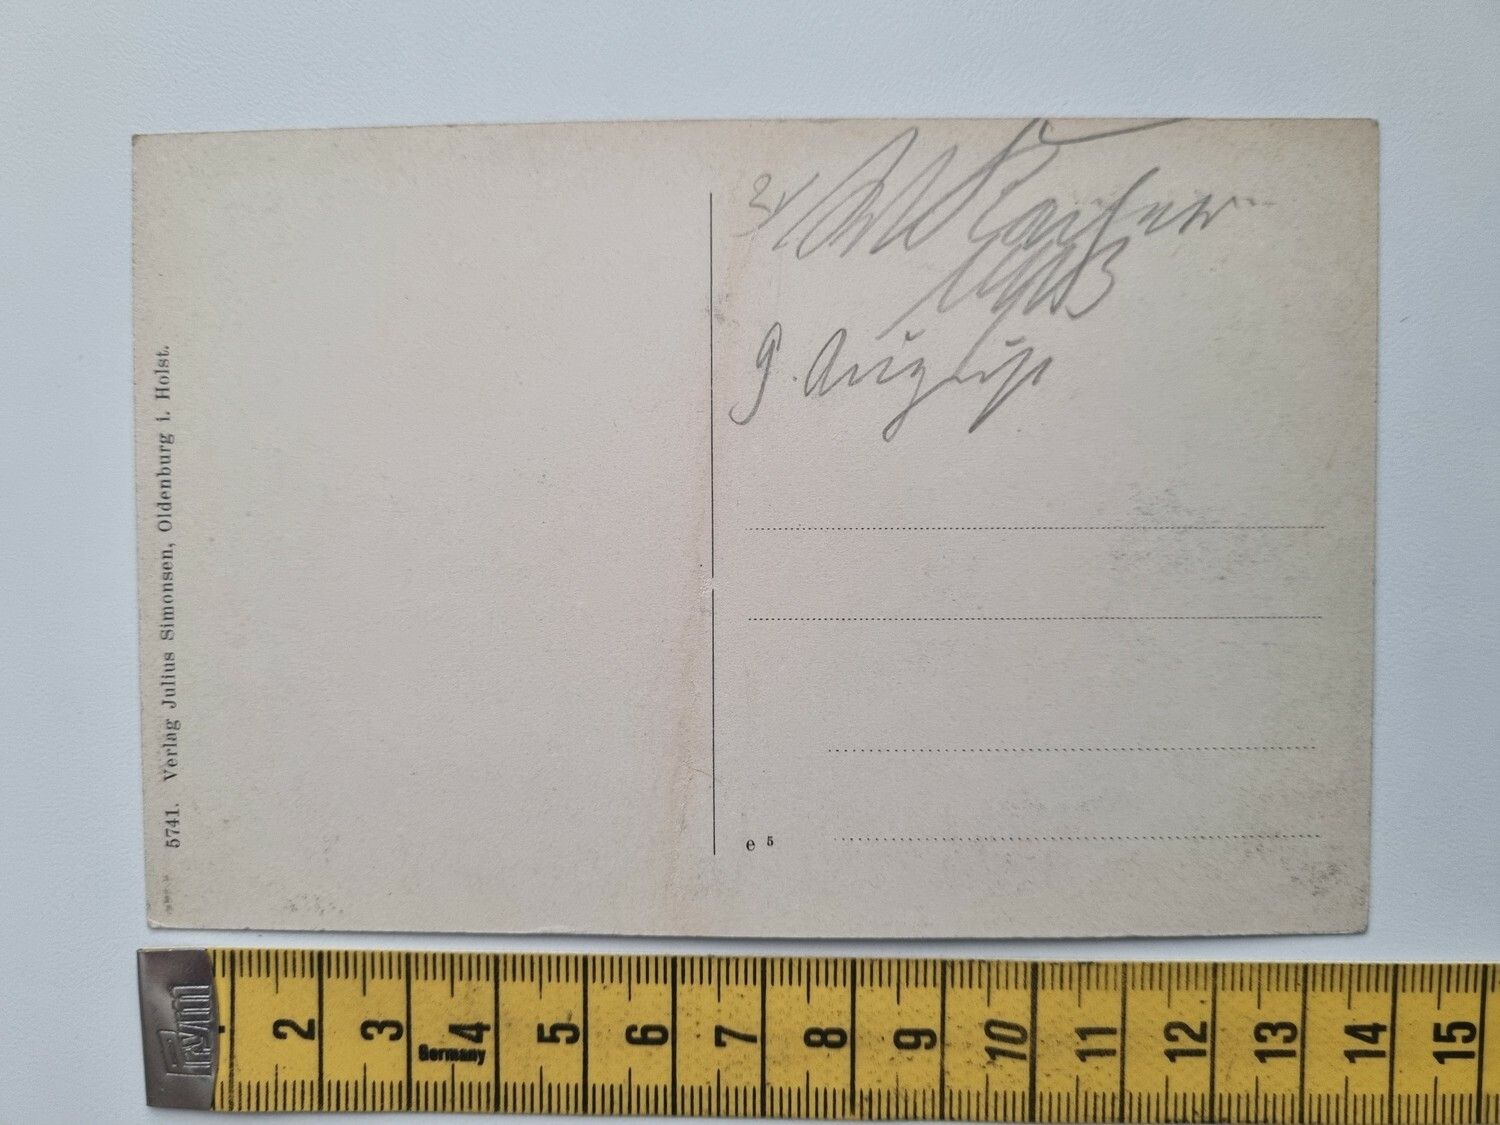 Kaiser
1913
9. August
5741. Verlag Julius Simonsen, Oldenburg i. Holst.
e 5
Prym
2 3 4 5 6 7 8 9 10 11 12 13 14 15
Germany